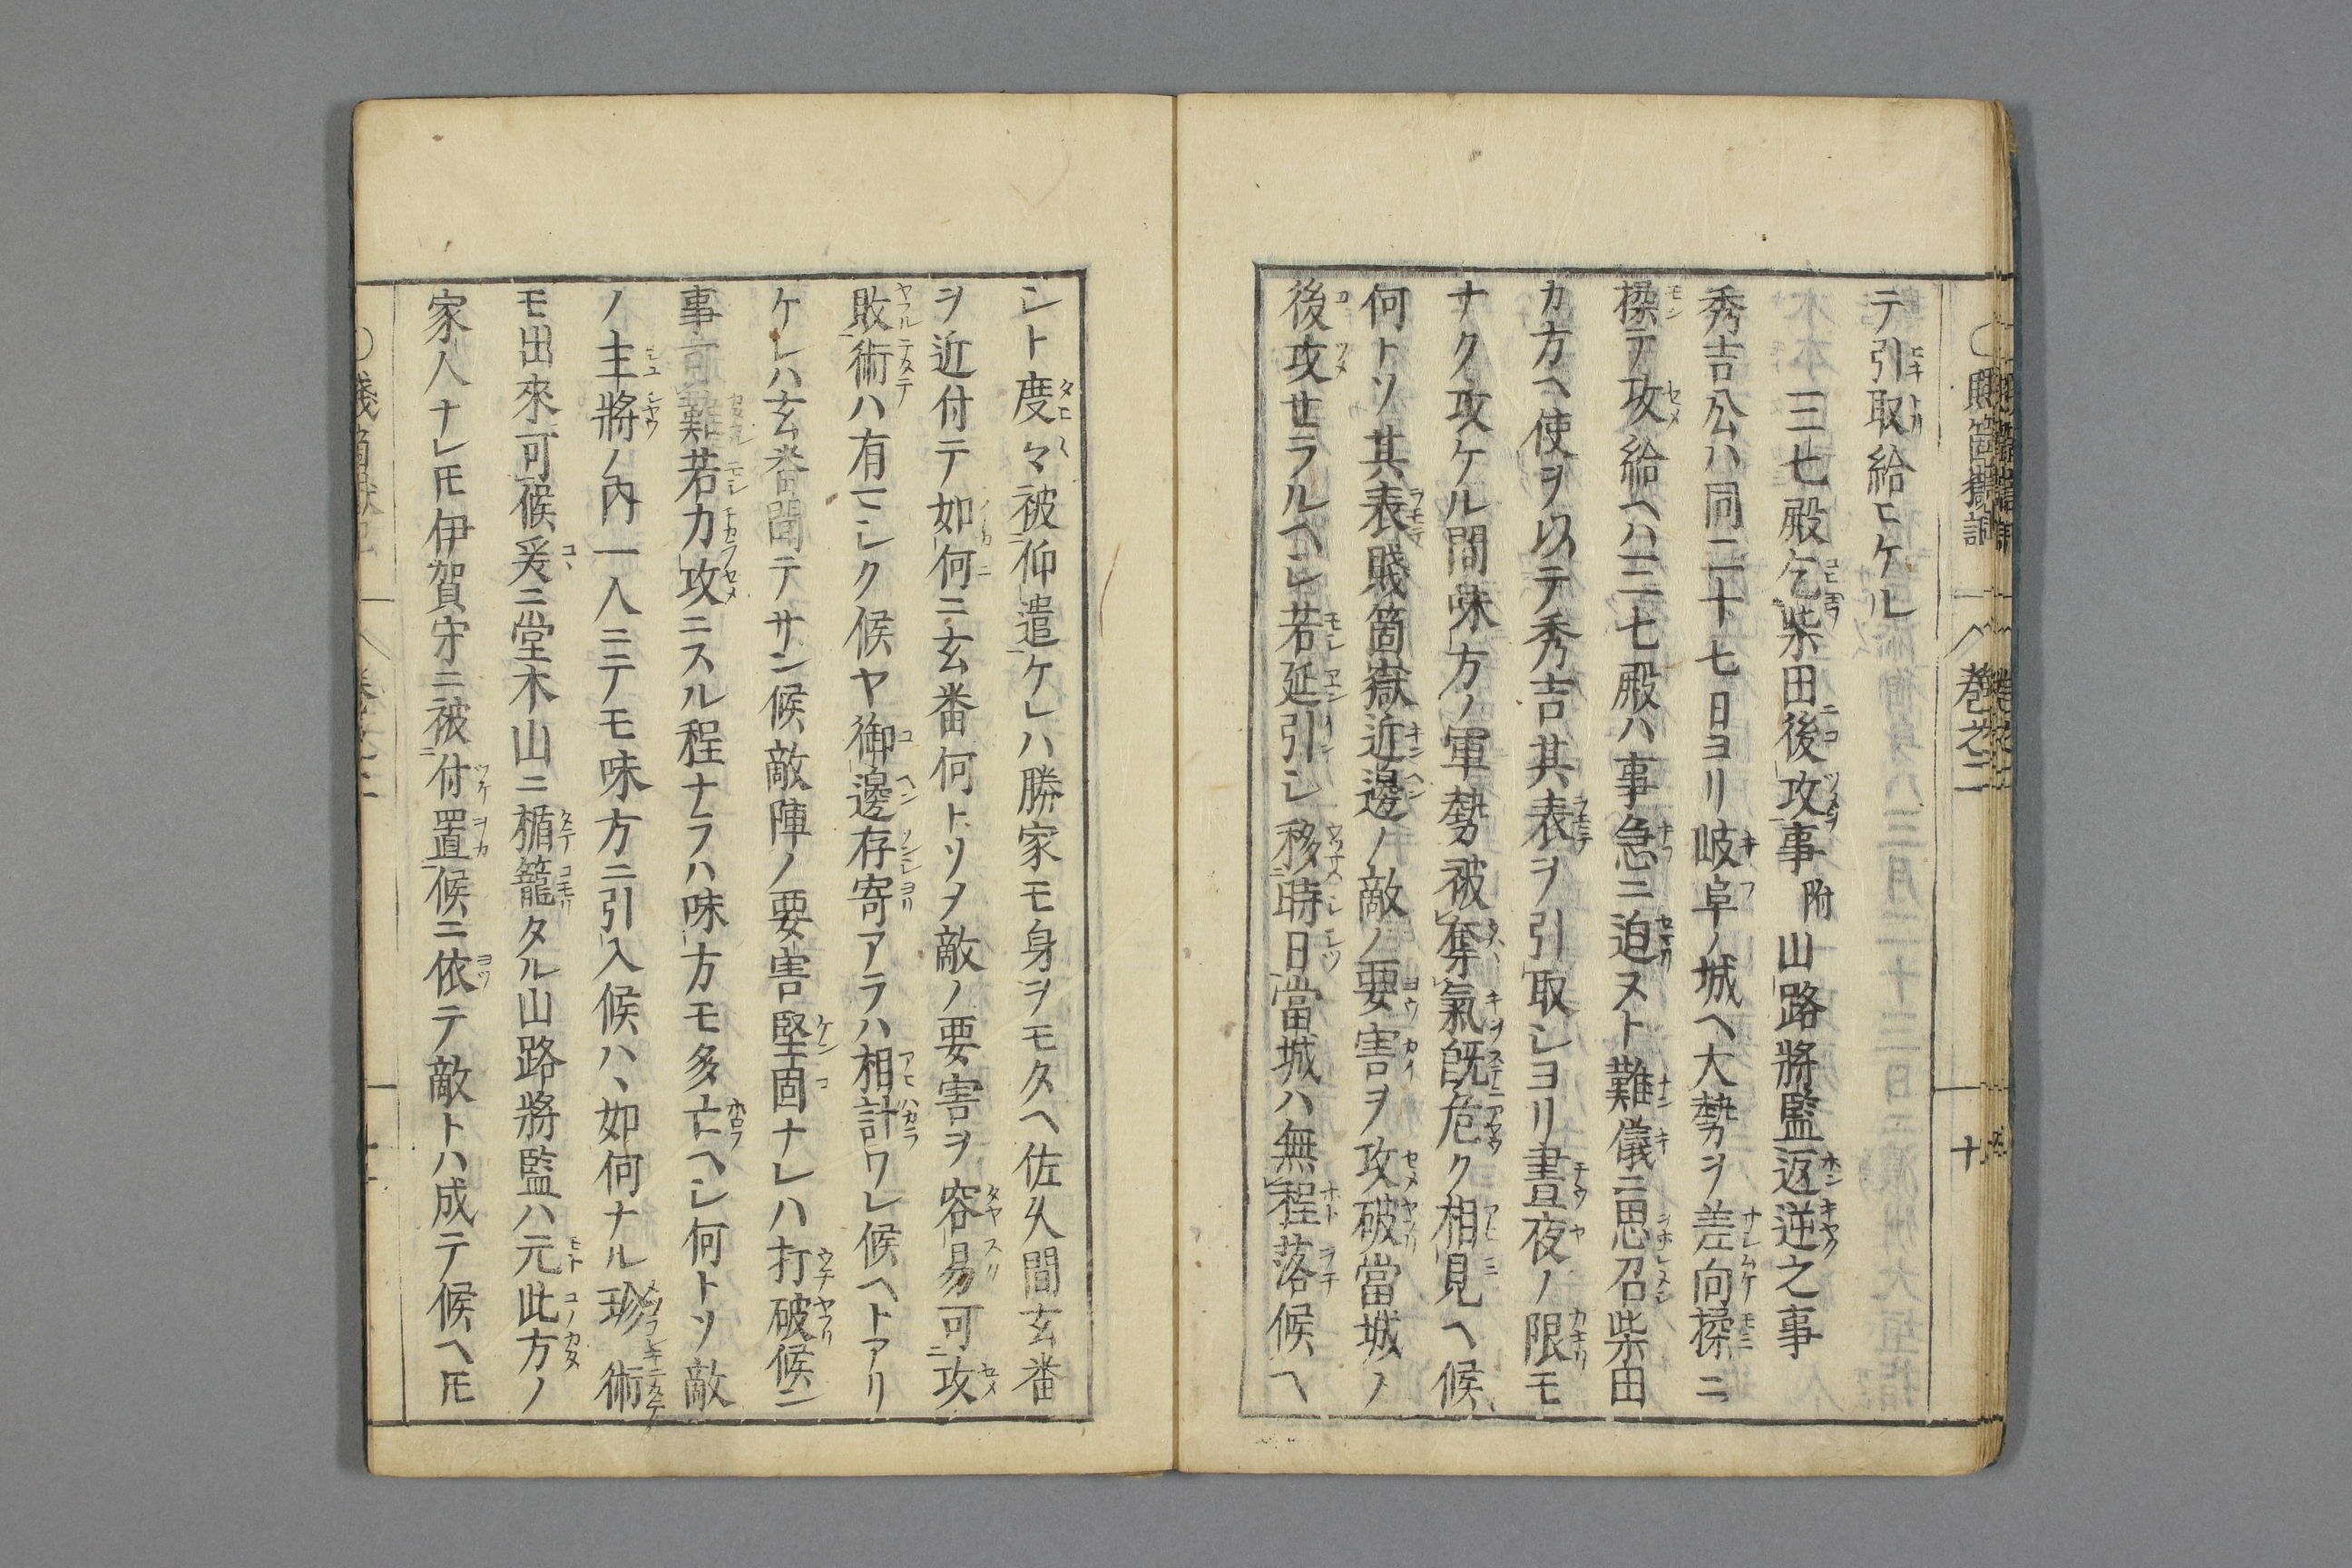 テ引取給ヒケル
三七殿乞柴田後攻事附山路將監返逆之事
秀吉公ハ同二十七日ヨリ岐阜ノ城ヘ大勢ヲ差向㨡ニ
㨡テ攻給ヘハ三七殿ハ事急ニ迫ヌト難儀ニ思召柴田
カ方ヘ使ヲ以テ秀吉其表ヲ引取シヨリ晝夜ノ限モ
ナク攻ケル間味方ノ軍勢被奪氣既危ク相見ヘ候
何トソ其表賤箇嶽近邊ノ敵ノ要害ヲ攻破當城ノ
後攻せラルヘシ若延引シ移時日當城ハ無程落候ヘ
シト度々被仰遣ケレハ勝家モ身ヲモタヘ佐久間玄番
ヲ近付テ如何ニ玄番何トソヲ敵ノ要害ヲ容易可攻
敗術ハ有マシク候ヤ御邊存寄アラハ相計ワレ候ヘトアリ
ケレハ玄番聞テサン候敵陣ノ要害堅固ナレハ打破候ハン
事可難若力攻ニスル程ナラハ味方モ多亡ヘシ何トソ敵
ノ主將ノ內一人ニテモ味方ニ引入候ハヽ如何ナル珍術
モ出來可候爰ニ堂木山ニ楯籠タル山路將監ハ元此方ノ
家人ナレ𪜈伊賀守ニ被付置候ニ依テ敵トハ成テ候ヘ𪜈
卷之二
十